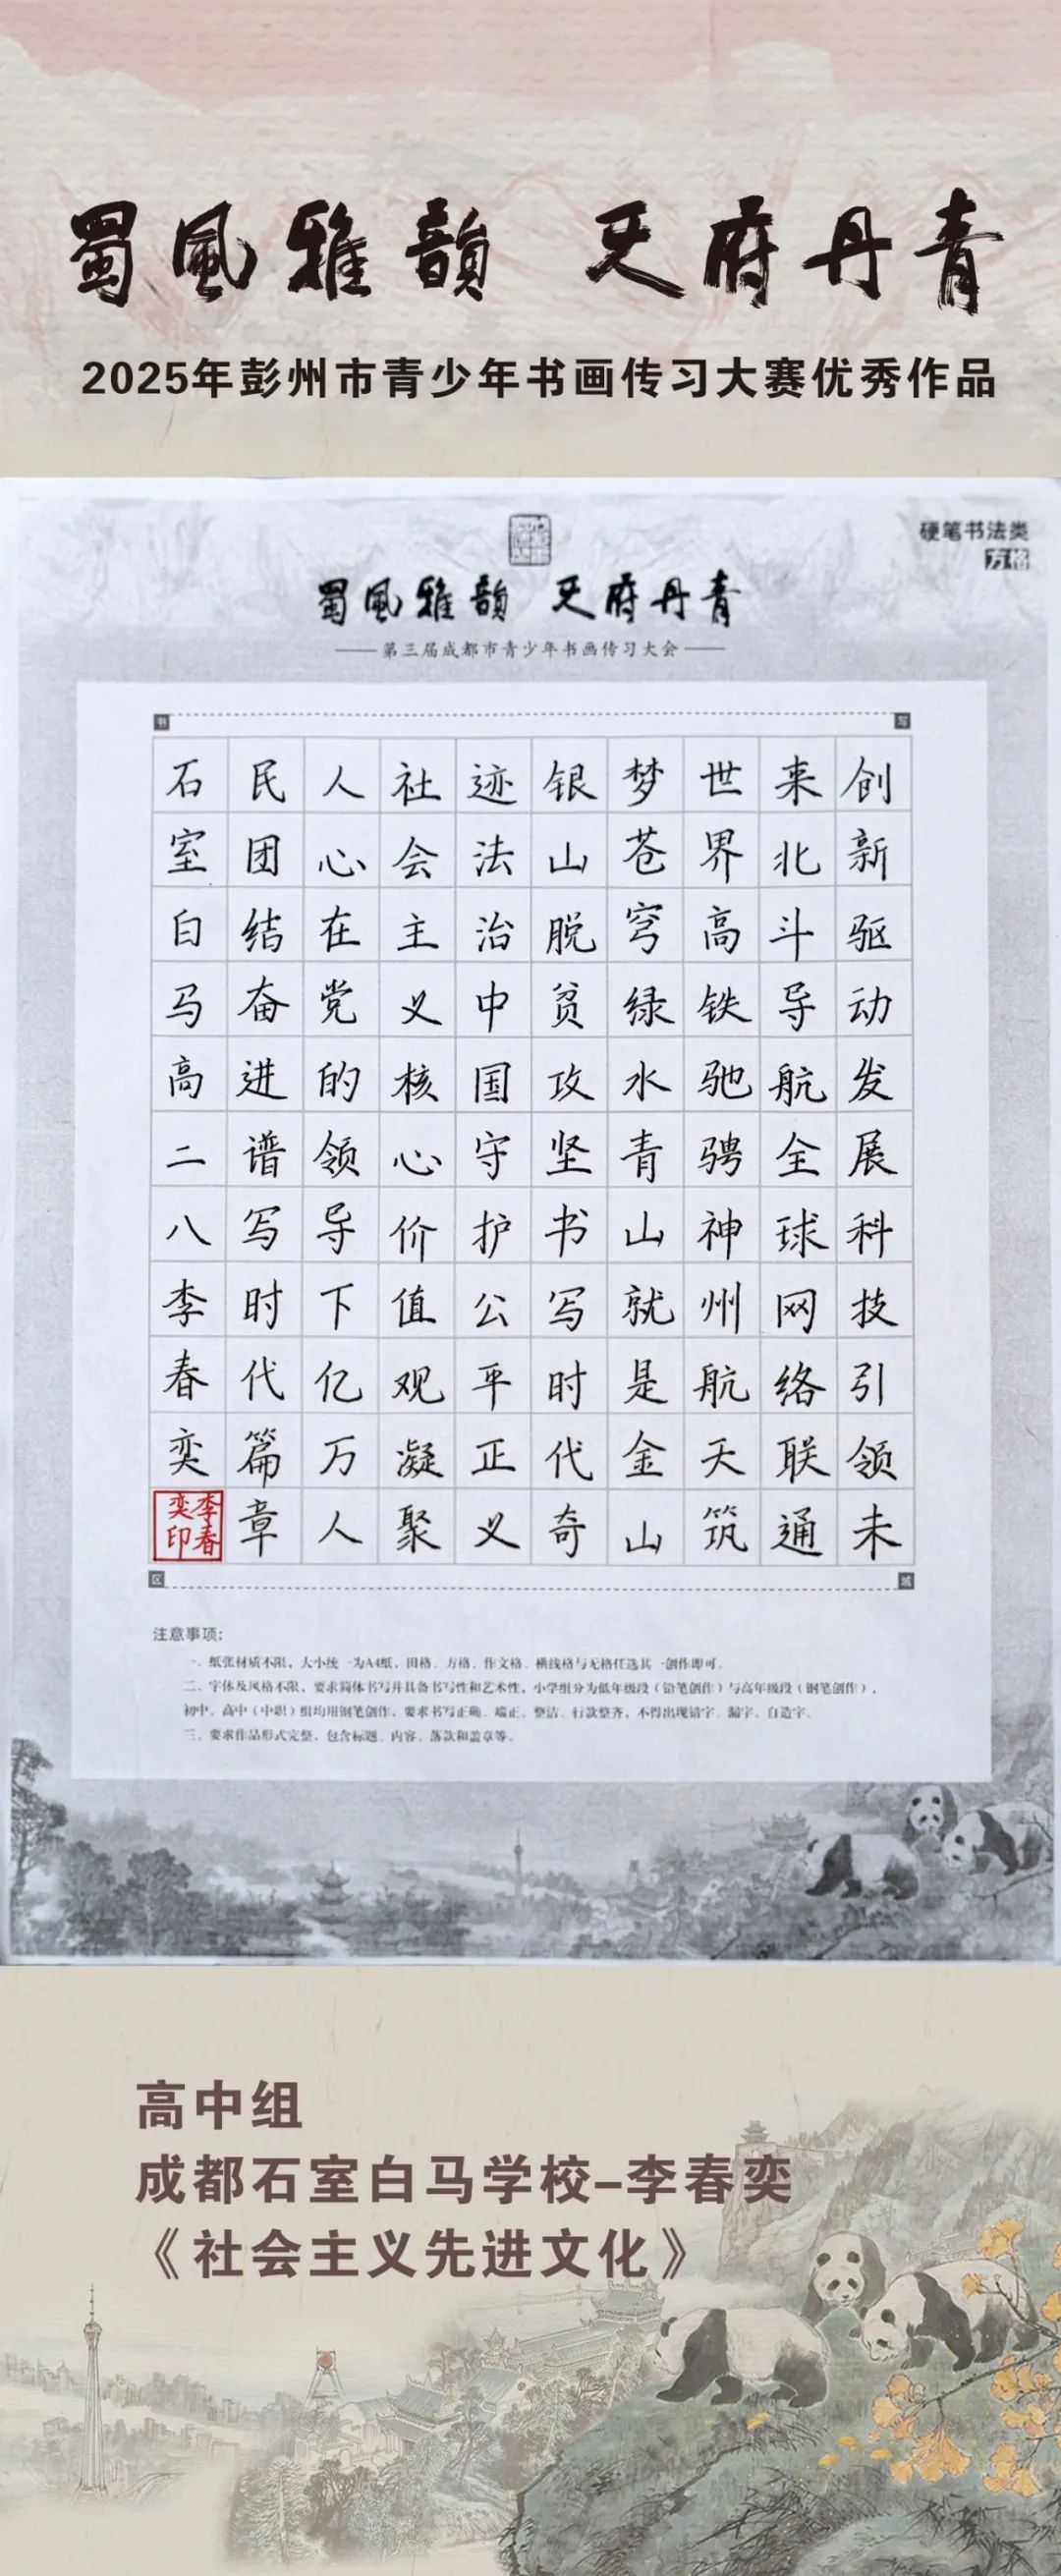 蜀風雅韻 天府丹青
2025年彭州市青少年书画传习大赛优秀作品
硬笔书法类
方格
蜀風雅韻 天府丹青
第三届成都市青少年书画传习大会
书
写
创新驱动发展科技引领未
来北斗导航全球网络联通
世界高铁驰骋神州航天筑
梦苍穹绿水青山就是金山
银山脱贫攻坚书写时代奇
迹法治中国守护公平正义
社会主义核心价值观凝聚
人心在党的领导下亿万人
民团结奋进谱写时代篇章
石室白马高二八李春奕
李春奕印
区
域
注意事项:
一、纸张材质不限，大小统一为A4纸，田格、方格、作文格、横线格与无格任选其一创作即可。
二、字体及风格不限，要求简体书写并具备书写性和艺术性，小学组分为低年级段（铅笔创作）与高年级段（钢笔创作），
初中、高中（中职）组均用钢笔创作，要求书写正确、端正、整洁、行款整齐，不得出现错字、漏字、自造字。
三、要求作品形式完整，包含标题、内容、落款和盖章等。
高中组
成都石室白马学校–李春奕
《社会主义先进文化》